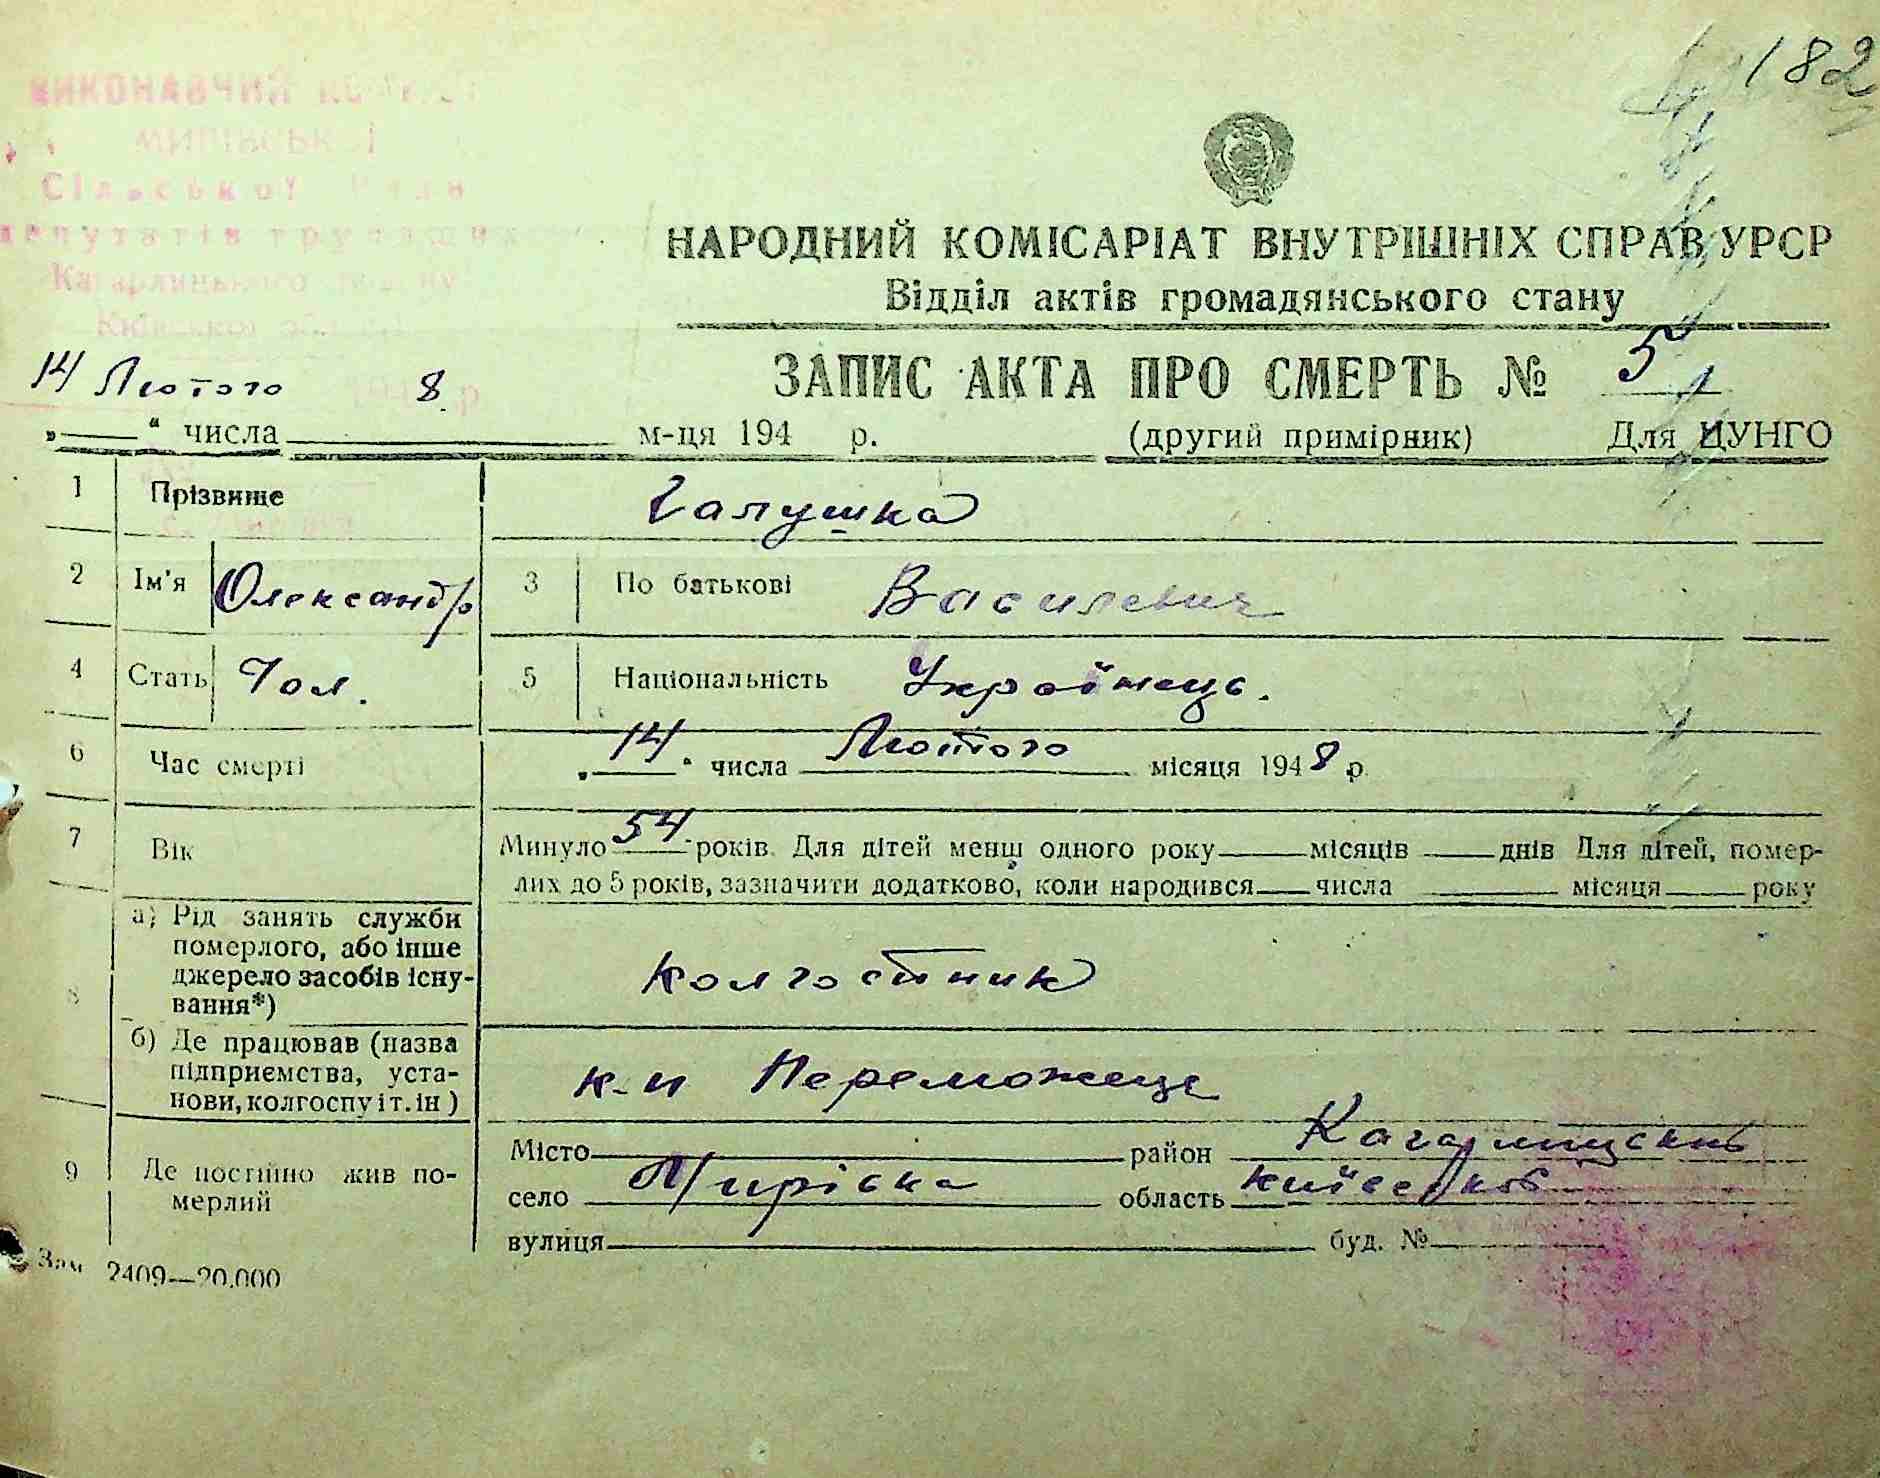 182
ВИКОНАВЧИЙ
Сільської
депутатів трудящих
Кагарлицького району
Київської області
НАРОДНИЙ КОМІСАРІАТ ВНУТРІШНІХ СПРАВ УРСР
Відділ актів громадянського стану
14 Лютого 8.
ЗАПИС АКТА ПРО СМЕРТЬ № 5
„ “ числа м-ця 194 р. (другий примірник) Для ЦУНГО
1 Прізвище Галушка
2 Ім'я Олександр 3 По батькові Василевич
4 Стать Чол. 5 Національність Українець.
6 Час смерті „14“ числа Лютого місяця 1948 р.
7 Вік Минуло 54 років. Для дітей менш одного року місяців днів Для дітей, помер-
лих до 5 років, зазначити додатково, коли народився числа місяця року
8 а) Рід занять служби
померлого, або інше
джерело засобів існу-
вання*)
колгостник
б) Де працював (назва
підприємства, уста-
нови, колгоспу і т. ін)
к-п Переможець
9 Де постійно жив по-
мерлий
Місто район Кагарлицькій
село Мирівка область київської
вулиця буд. №
Зам 2409—20.000